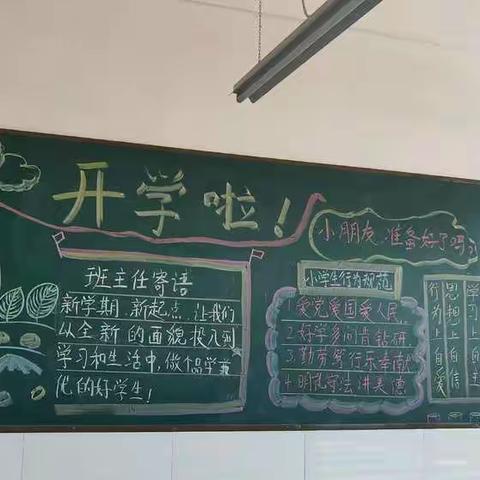 开学啦！
小朋友,准备好了吗?
班主任寄语
新学期,新起点,让我们
以全新的面貌投入到
学习和生活中,做个品学兼
优的好学生!
小学生行为规范
1.爱党爱国爱人民
2.好学多问肯钻研
3.勤劳笃行乐奉献
4.明礼守法讲美德
学习上自主
思想上自信
行为上自爱